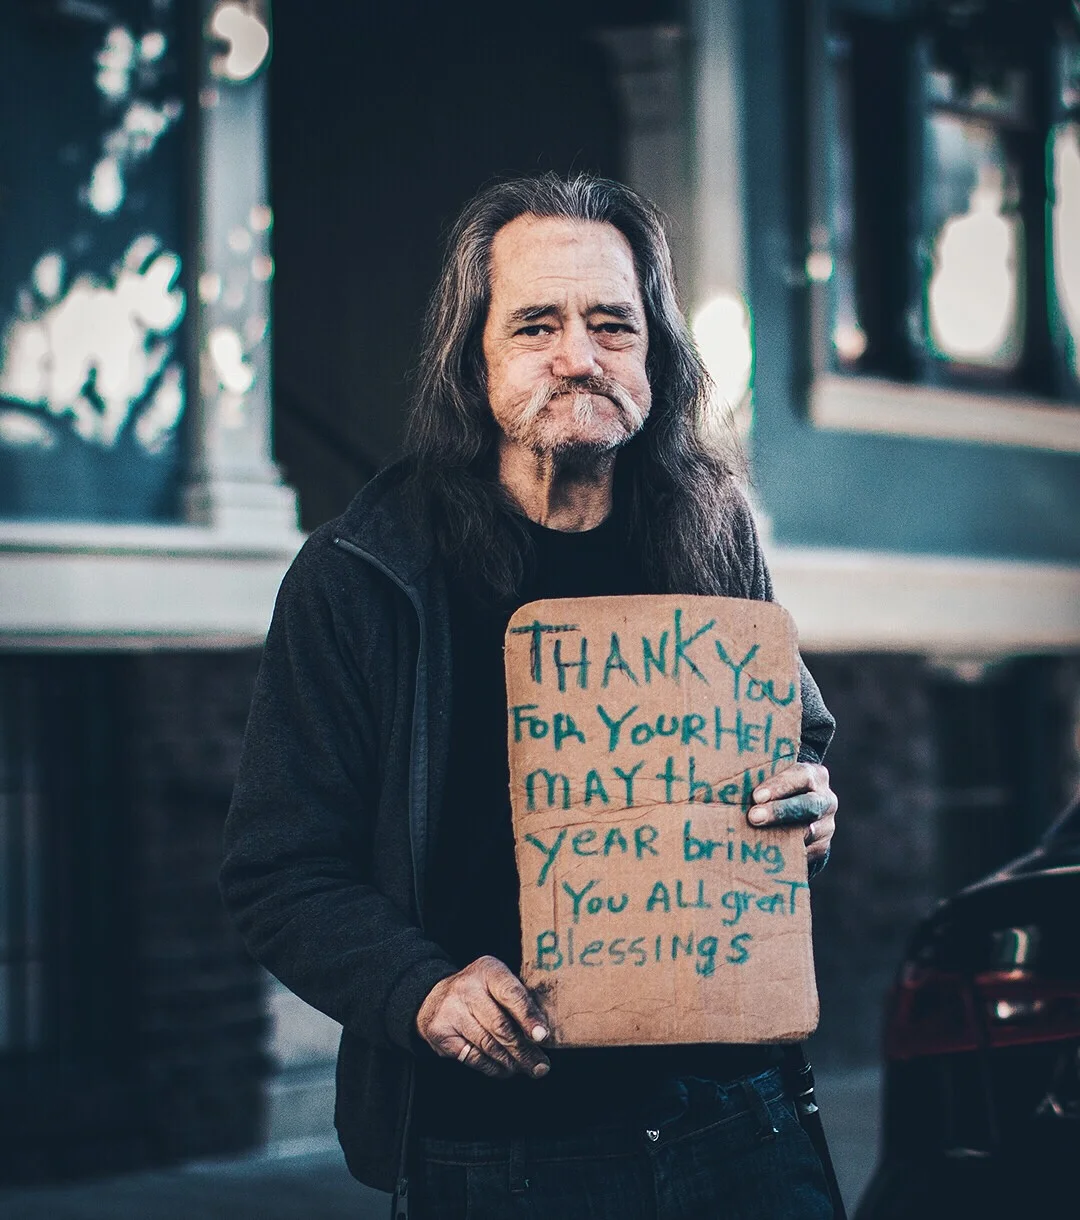 THANK You
FOR YOUR HElp
MAY the
YeAR briNg
You ALL greaT
BlessINgs